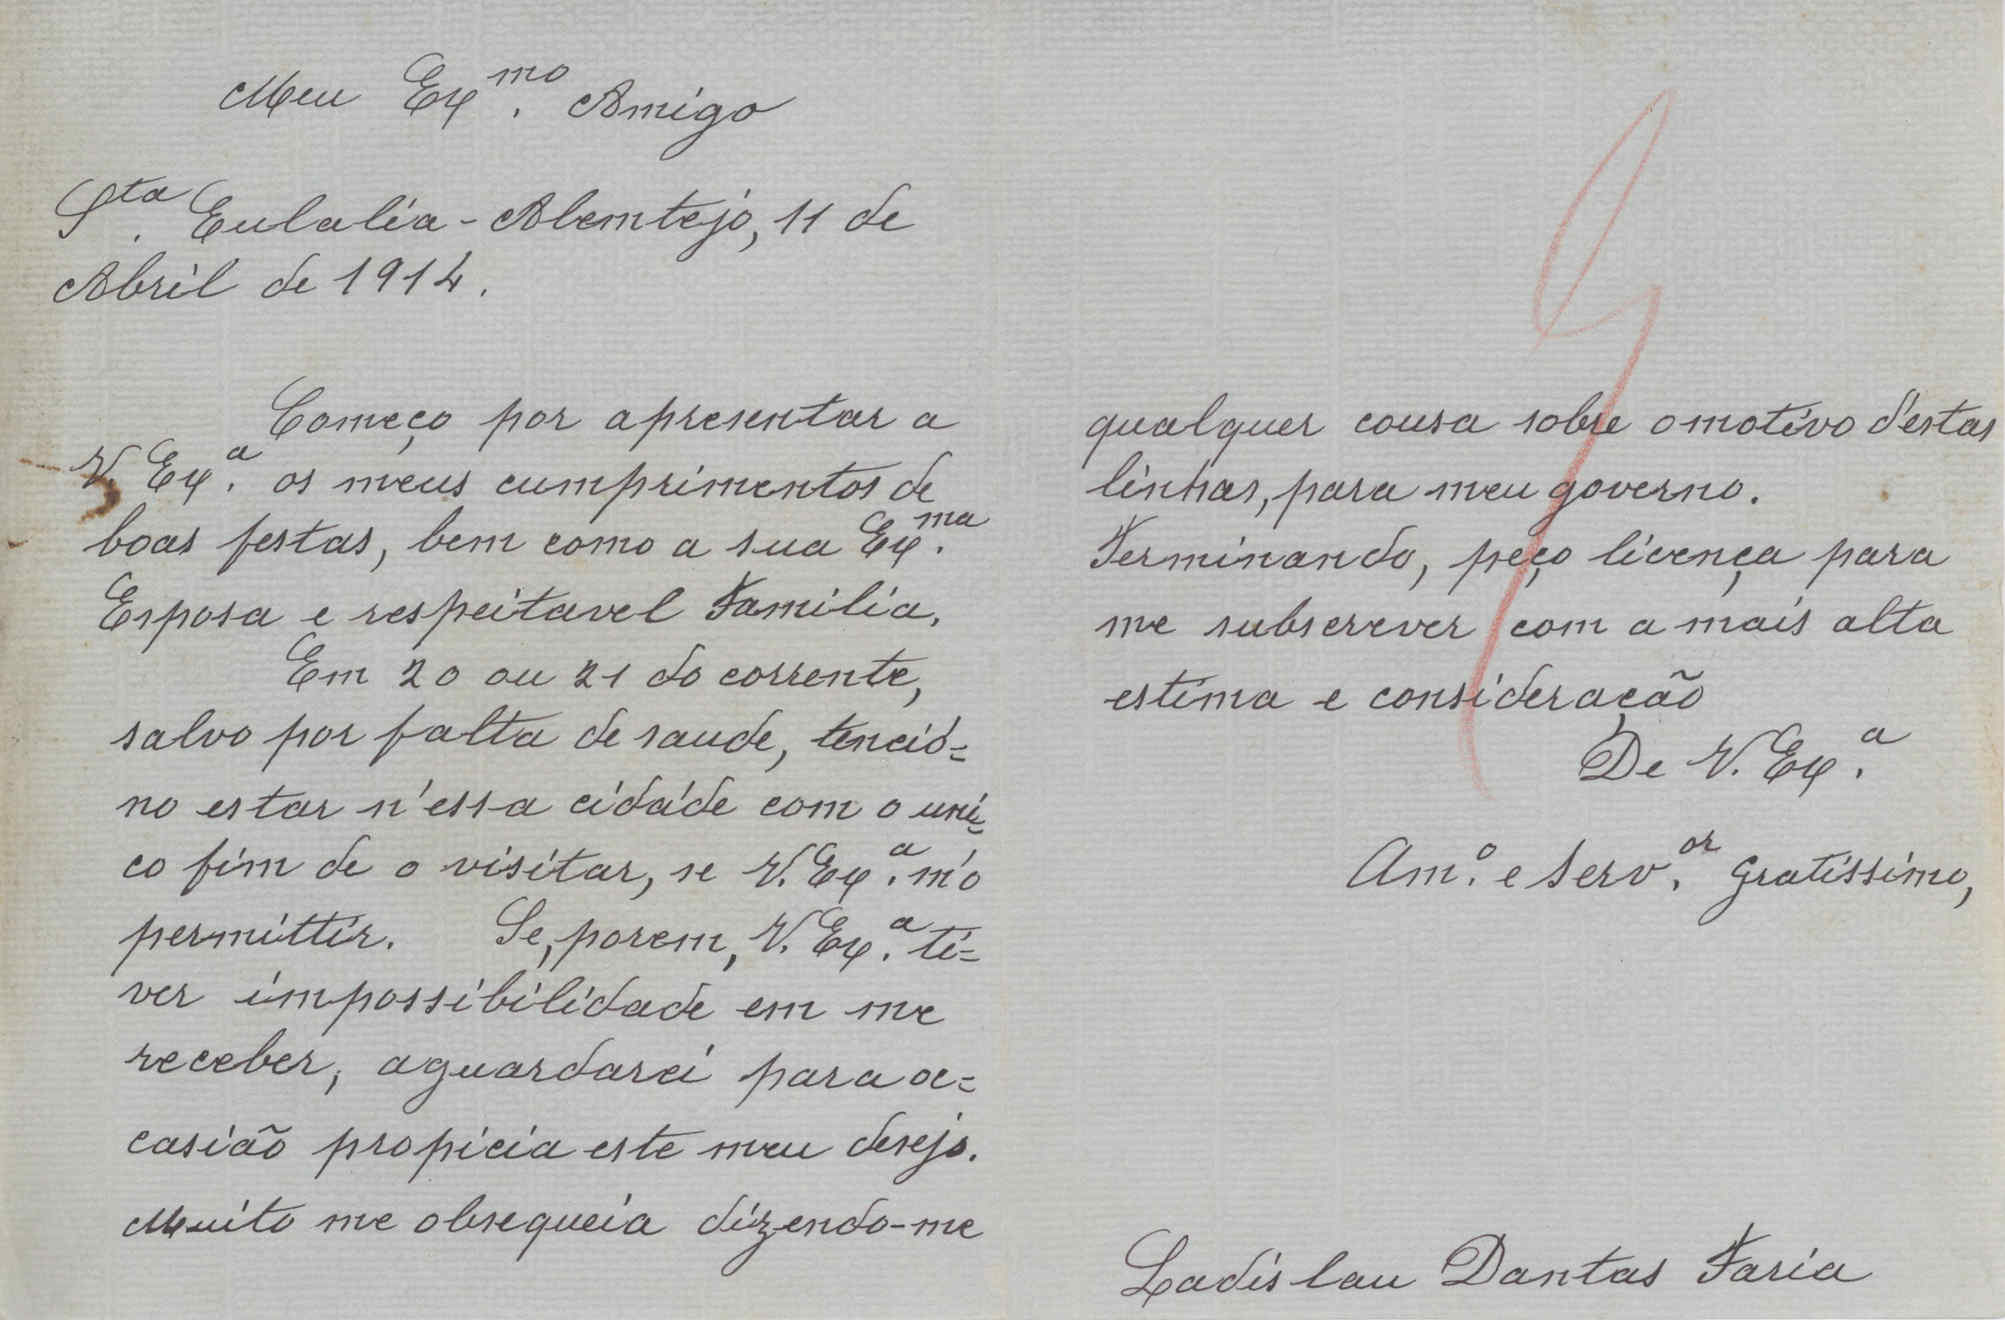 Meu Ex.mo Amigo
S.ta Eulalia - Alemtejo, 11 de
Abril de 1914.
Começo por apresentar a
V. Ex.a os meus cumprimentos de
boas festas, bem como a sua Ex.ma
Esposa e respeitavel Familia.
Em 20 ou 21 do corrente,
salvo por falta de saude, tenció=
no estar n'essa cidade com o uni=
co fim de o visitar, se V. Ex.a m'o
permittir. Se, porem, V. Ex.a ti=
ver impossibilidade em me
receber, aguardarei para oc=
casião propicia este meu desejo.
Muito me obsequeia dizendo-me
qualquer cousa sobre o motivo d'estas
linhas, para meu governo.
Terminando, peço licença para
me subscrever com a mais alta
estima e consideração
De V. Ex.a
Am.o e Serv.or Gratissimo,
Ladislau Dantas Faria